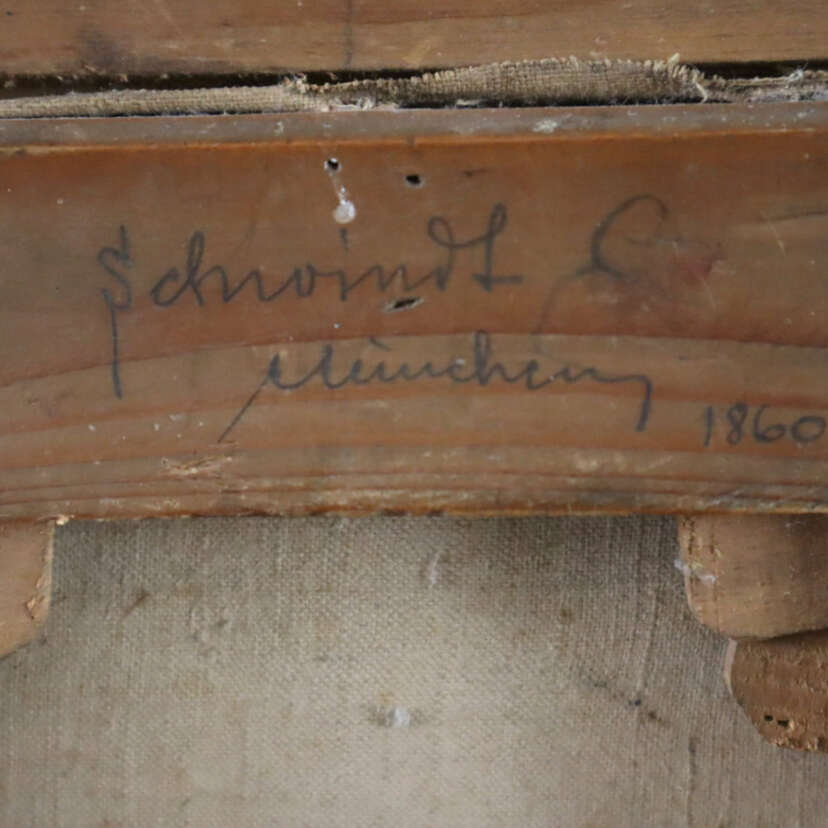 Schwindt C
München 1860